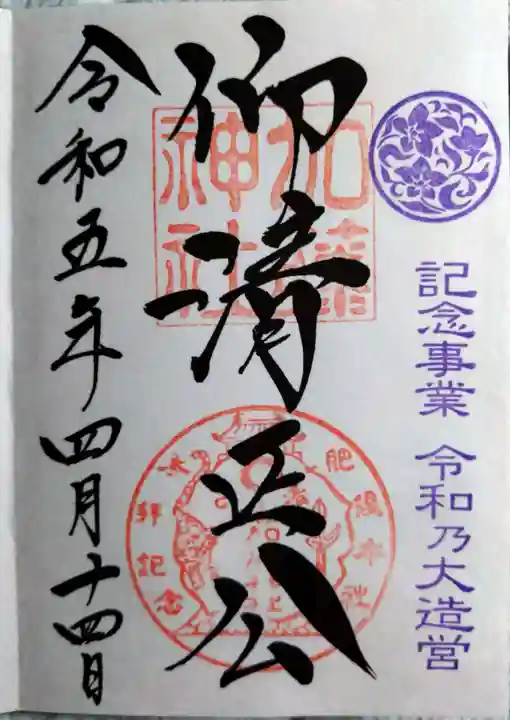 記念事業 令和乃大造営
仰清正公
加藤
神社
肥後本社
参拝記念
令和五年四月十四日